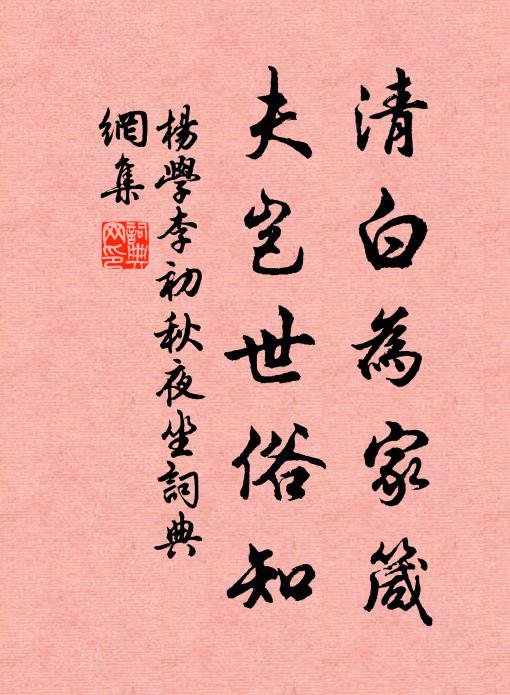 清白為家箴
夫岂世俗知
楊學李初秋夜坐詞典
網集
詞典
网印